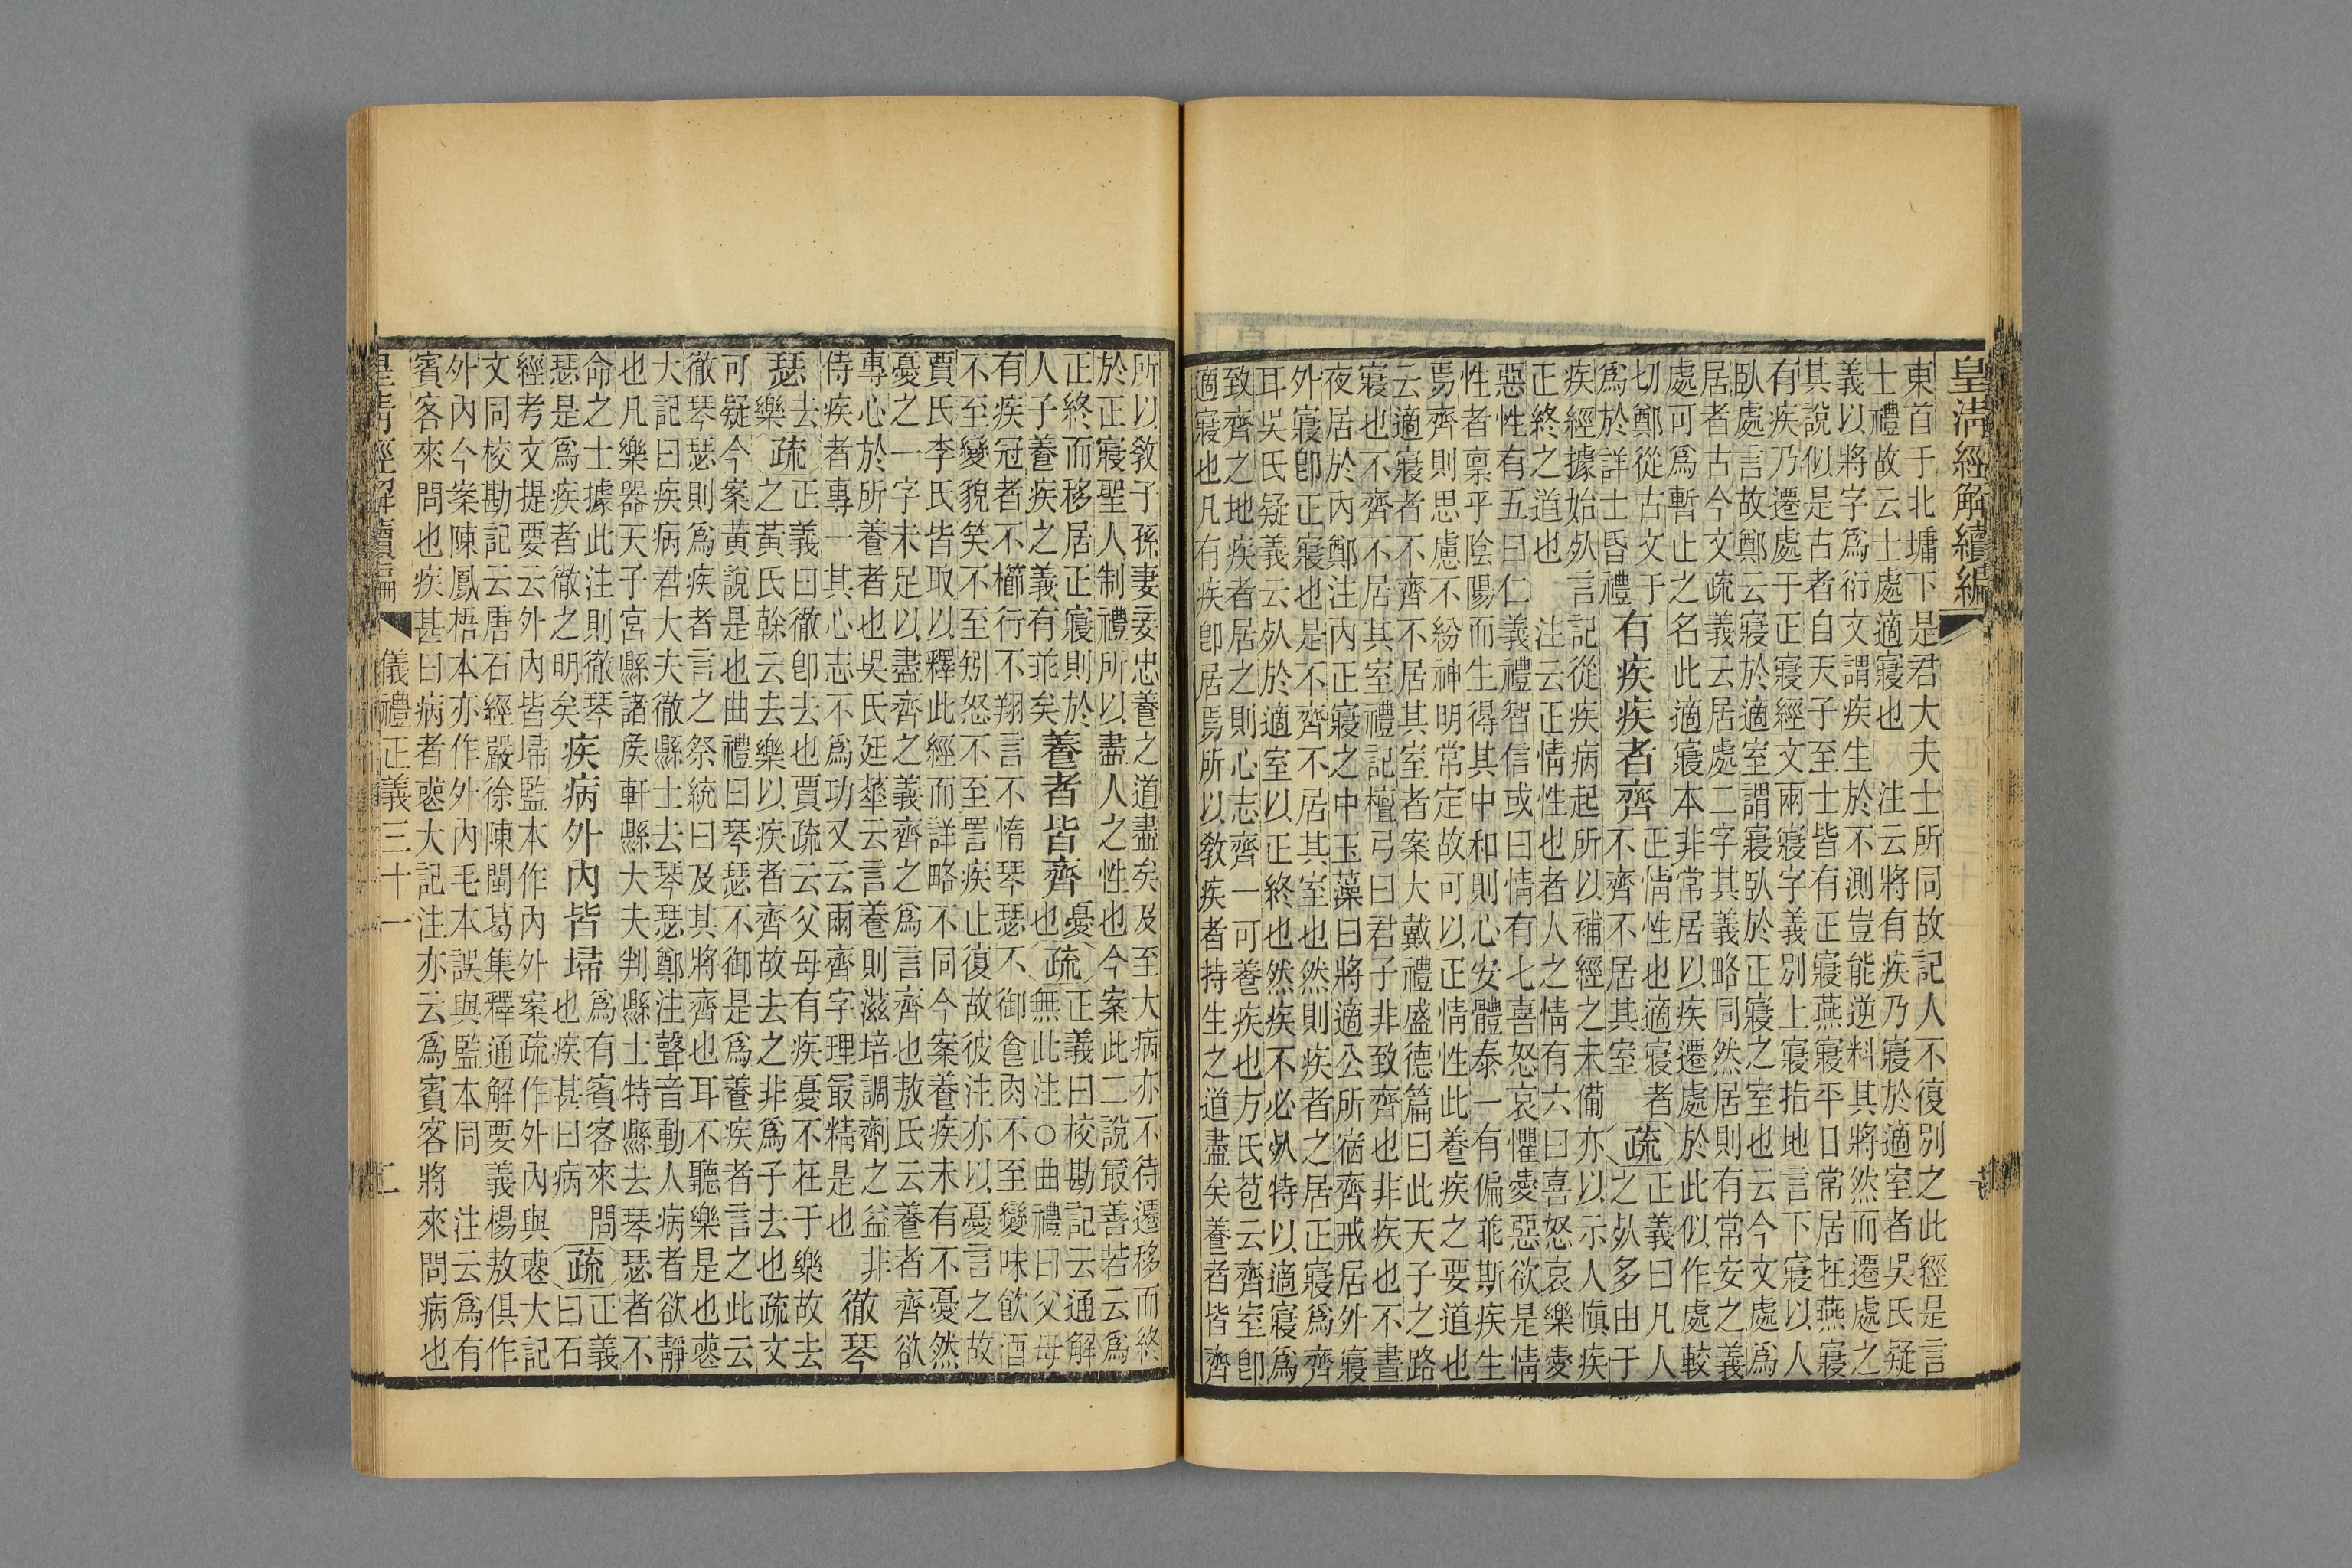 皇清經解續編
東首于北墉下是君大夫士所同故記人不復別之此經是言
士禮故云士處適寢也　注云將有疾乃寢於適室者吳氏疑
義以將字爲衍文謂疾生於不測豈能逆料其將然而遷處之
其說似是古者自天子至士皆有正寢燕寢平日常居在燕寢
有疾乃遷處于正寢經文兩寢字義別上寢指地言下寢以人
臥處言故鄭云寢於適室謂寢臥於正寢之室也云今文處爲
居者古今文疏義云居處二字其義略同然居則有常安之義
處可爲暫止之名此適寢本非常居以疾遷處於此似作處較
切鄭從古文于
爲於詳士昏禮
有疾疾者齊
正情性也適寢者
不齊不居其室
疏
正義曰凡人
之㱙多由于
疾經據始㱙言記從疾病起所以補經之未備亦以示人愼疾
正終之道也　注云正情性也者人之情有六曰喜怒哀樂愛
惡性有五曰仁義禮智信或曰情有七喜怒哀懼愛惡欲是情
性者禀乎陰陽而生得其中和則心安體泰一有偏乖斯疾生
焉齊則思慮不紛神明常定故可以正情性此養疾之要道也
云適寢者不齊不居其室者案大戴禮盛德篇曰此天子之路
寢也不齊不居其室禮記檀弓曰君子非致齊也非疾也不晝
夜居於內鄭注內正寢之中玉藻曰將適公所宿齊戒居外寢
外寢卽正寢也是不齊不居其室也然則疾者之居正寢爲齊
耳吳氏疑義云㱙於適室以正終也然疾不必㱙特以適寢爲
致齊之地疾者居之則心志齊一可養疾也方氏苞云齊室卽
適寢也凡有疾卽居焉所以敎疾者持生之道盡矣養者皆齊
所以敎子孫妻妾忠養之道盡矣及至大病亦不待遷移而終
於正寢聖人制禮所以盡人之性也今案此二說最善若云爲
正終而移居正寢則於
人子養疾之義有乖矣
養者皆齊
憂
也
疏
正義曰校勘記云通解
無此注○曲禮曰父母
有疾冠者不櫛行不翔言不惰琴瑟不御食肉不至變味飮酒
不至變貌笑不至矧怒不至詈疾止復故彼注亦以憂言之故
賈氏李氏皆取以釋此經而詳略不同今案養疾未有不憂然
憂之一字未足以盡齊之義齊之爲言齊也敖氏云養者齊欲
專心於所養者也吳氏廷華云言養則滋培調劑之益非
侍疾者專一其心志不爲功又云兩齊字理最精是也
徹琴
瑟
去
樂
疏
正義曰徹卽去也賈疏云父母有疾憂不在于樂故去
之黃氏榦云去樂以疾者齊故去之非爲子去也疏文
可疑今案黃說是也曲禮曰琴瑟不御是爲養疾者言之此云
徹琴瑟則爲疾者言之祭統曰及其將齊也耳不聽樂是也喪
大記曰疾病君大夫徹縣士去琴瑟鄭注聲音動人病者欲靜
也凡樂器天子宮縣諸矦軒縣大夫判縣士特縣去琴瑟者不
命之士據此注則徹琴
瑟是爲疾者徹之明矣
疾病外內皆埽
爲有賓客來問
也疾甚曰病
疏
正義
曰石
經考文提要云外內皆埽監本作內外案疏作外內與喪大記
文同校勘記云唐石經嚴徐陳閩葛集釋通解要義楊敖俱作
外內今案陳鳳梧本亦作外內毛本誤與監本同　注云爲有
賓客來問也疾甚曰病者喪大記注亦云爲賓客將來問病也
皇清經解續編　儀禮正義三十一　二